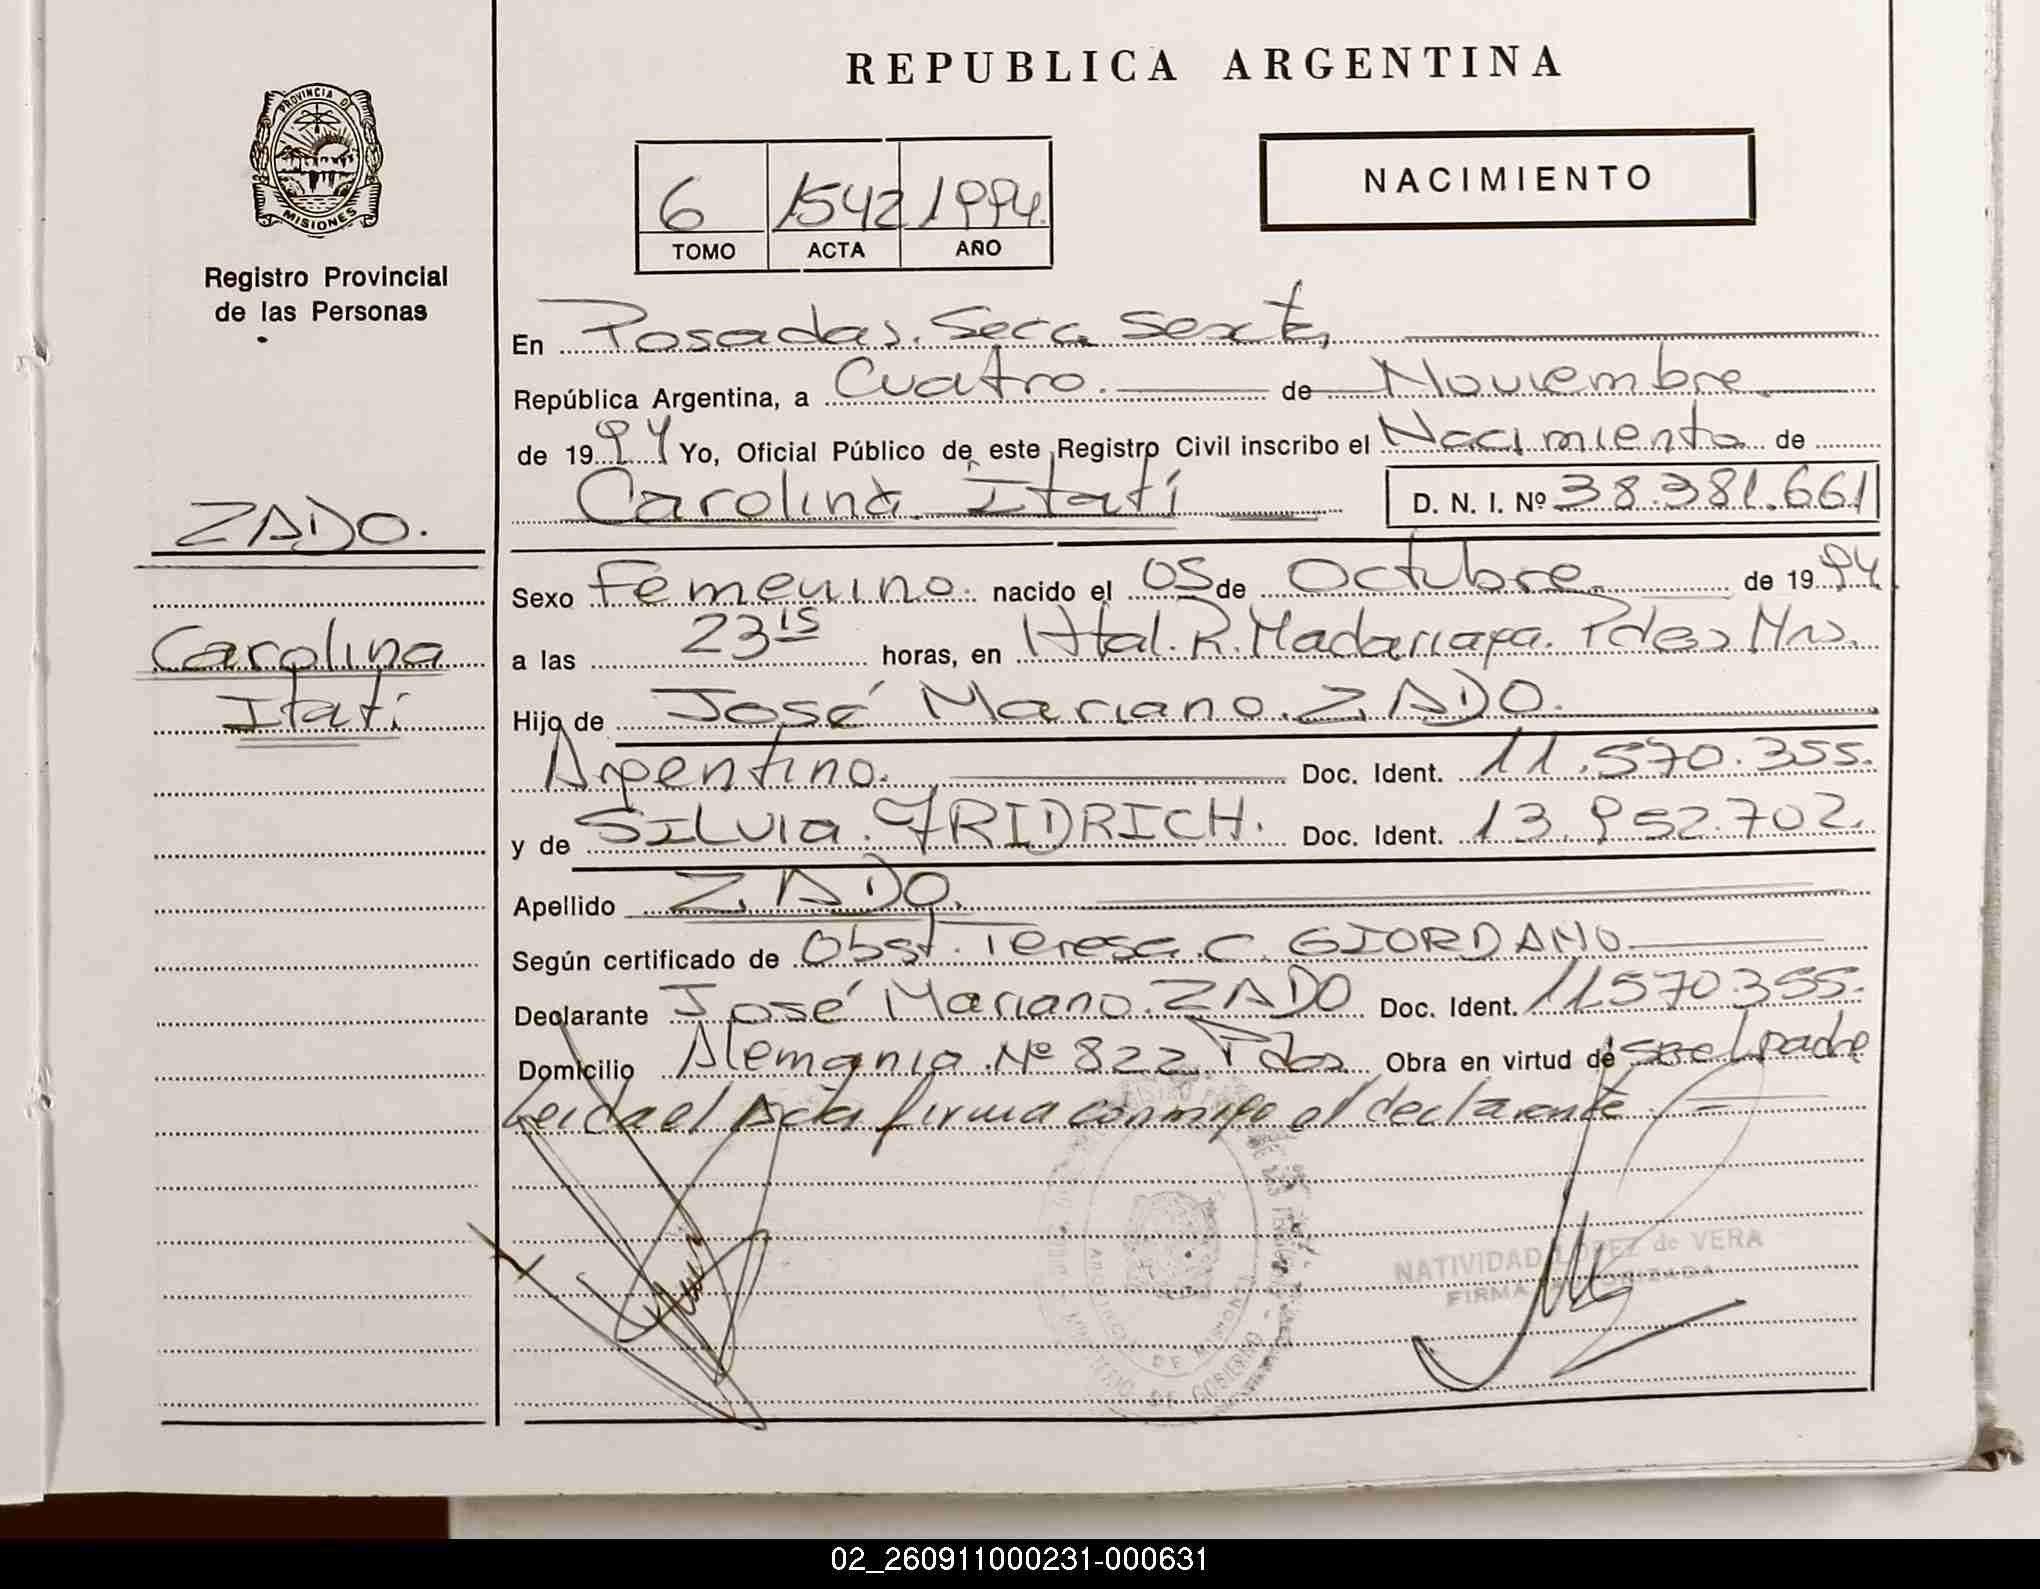 REPUBLICA ARGENTINA
PROVINCIA DE
MISIONES
Registro Provincial
de las Personas
NACIMIENTO
6 1542 1994.
TOMO ACTA AÑO
En Posadas. Secc. Sexta,
República Argentina, a Cuatro. de Noviembre
de 1994 Yo, Oficial Público de este Registro Civil inscribo el Nacimiento de
Carolina Itatí D. N. I. Nº 38.381.661
ZADO.
Carolina
Itatí
Sexo Femenino. nacido el 05 de Octubre de 1994
a las 23 15 horas, en Htal. R. Madariaga. Pdas Mns.
Hijo de José Mariano. ZADO.
Argentino. Doc. Ident. 11.570.355.
y de SILVIa. FRIDRICH. Doc. Ident. 13.952.702.
Apellido ZADO.
Según certificado de Obst. Teresa. C. GIORDANO
Declarante José Mariano. ZADO Doc. Ident. 11570355.
Domicilio Alemania Nº 822 Pdas Obra en virtud de ser el padre
Leida el Acta firma conmigo el declarante.-
NATIVIDAD LOPEZ de VERA
FIRMA AUTORIZADA
DE MISIONES
DE GOBIERNO
02_260911000231-000631